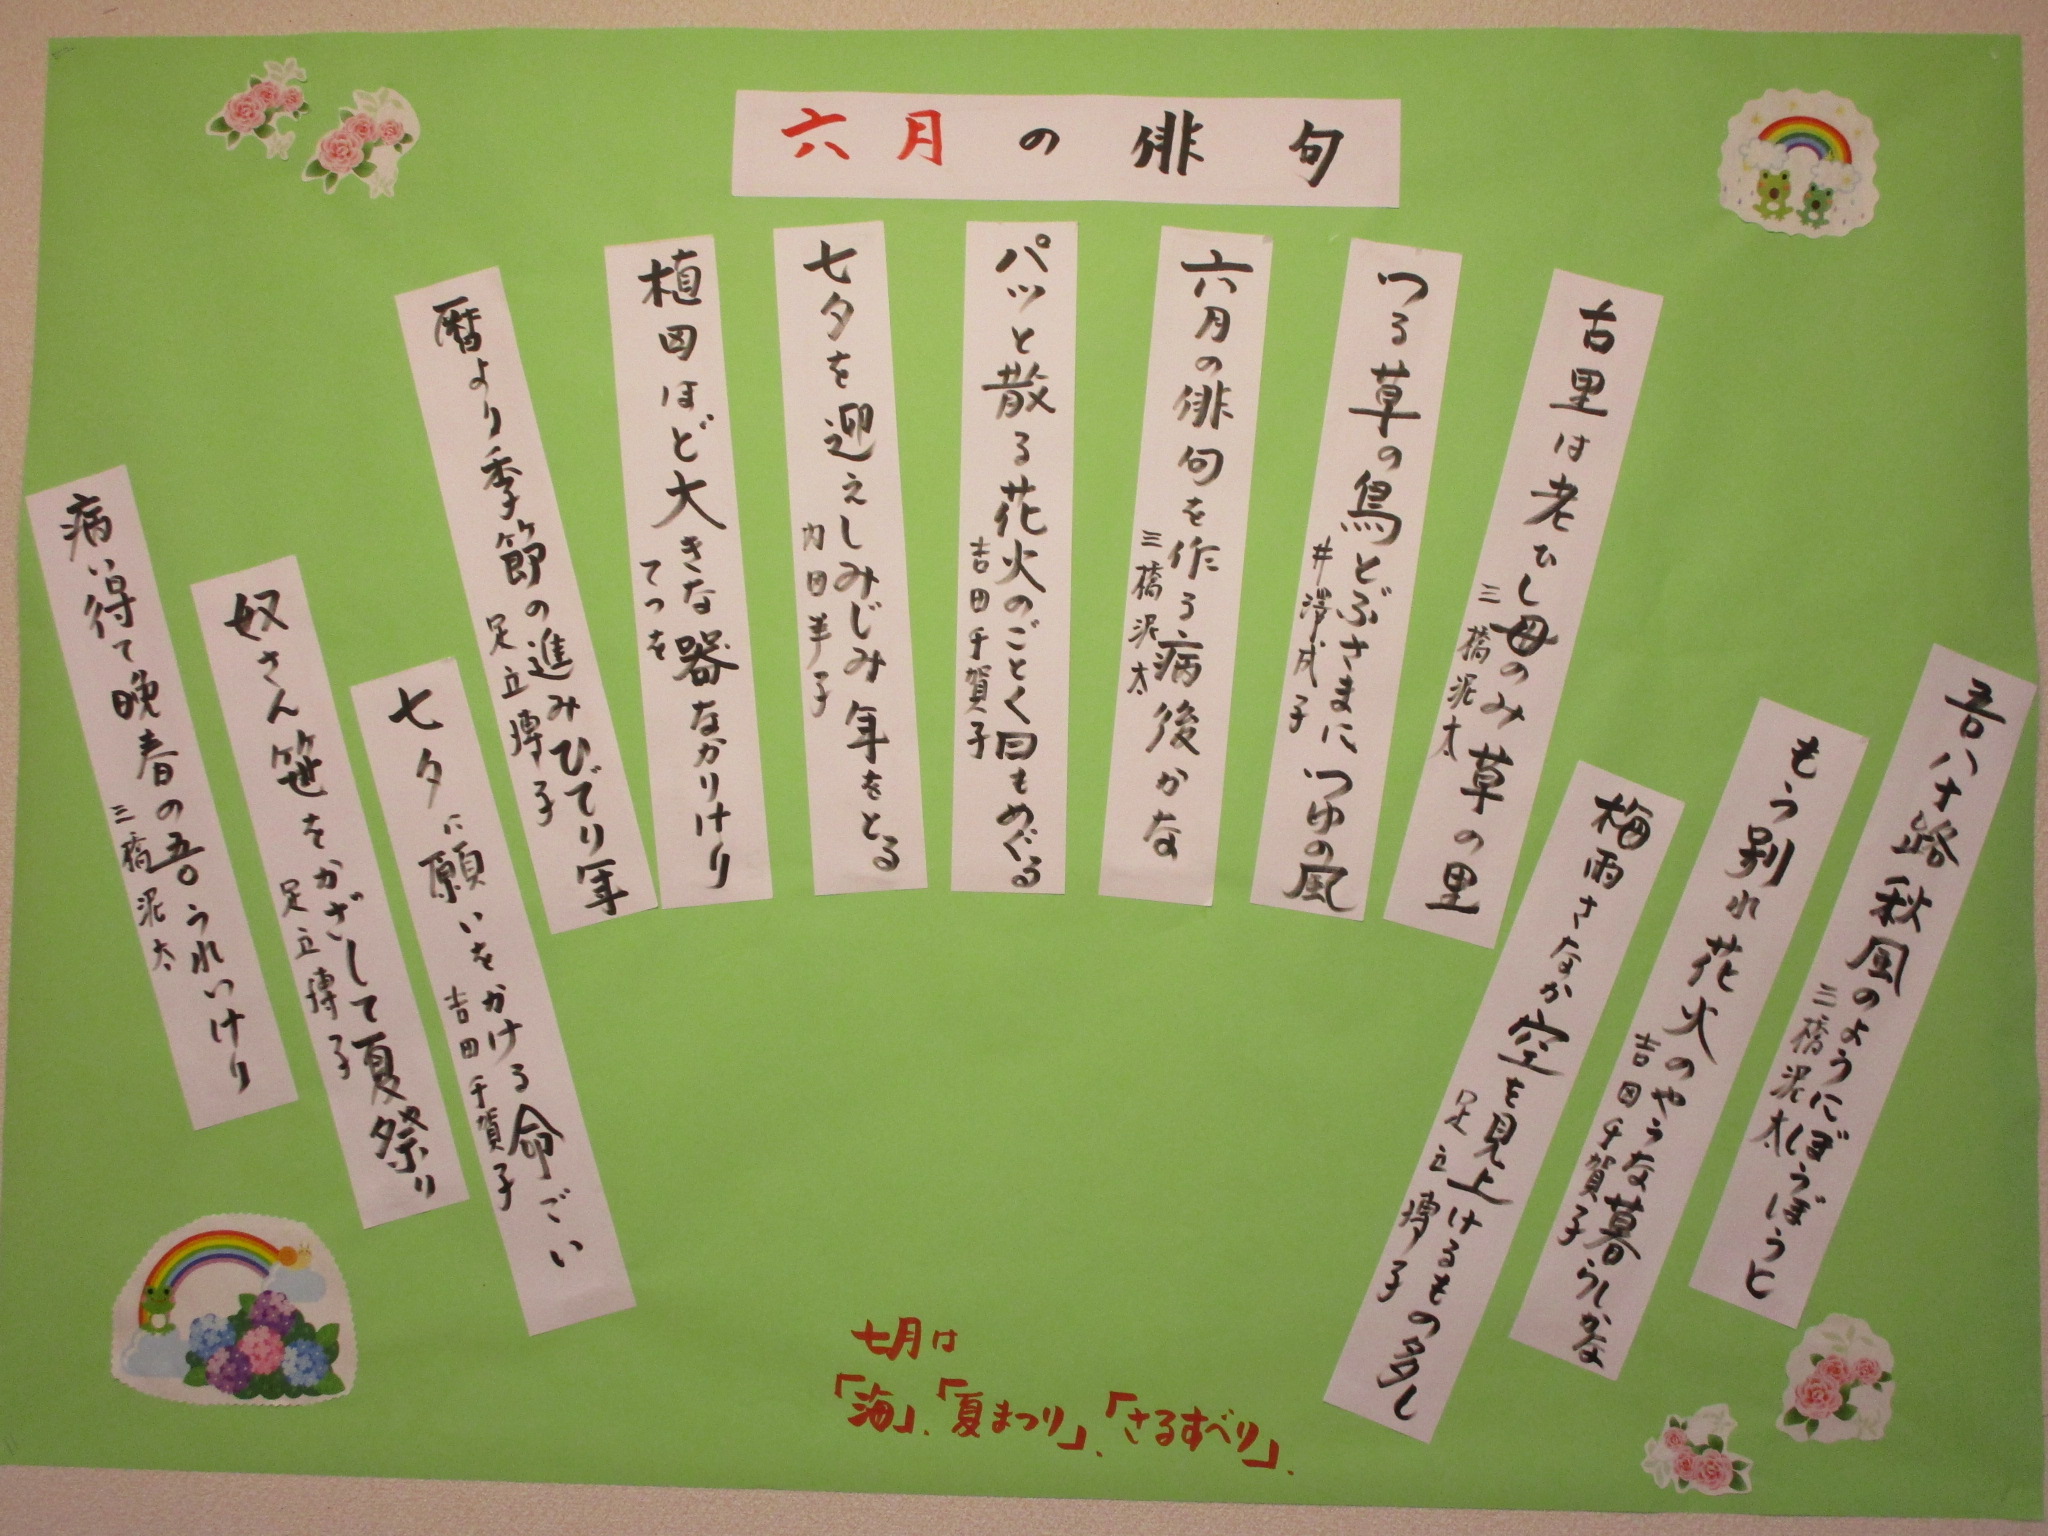 六月の俳句
吾八十路秋風のようにぼうぼうと
三橋泥太
もう別れ花火のやうな暮らしかな
吉田千賀子
梅雨さなか空を見上げるもの多し
足立博子
古里は老ひし母のみ草の里
三橋泥太
つる草の鳥とぶさまにつゆの風
井澤戌子
六月の俳句を作る病後かな
三橋泥太
パッと散る花火のごとく日もめぐる
吉田千賀子
七夕を迎えしみじみ年をとる
内田羊子
植田ほど大きな器なかりけり
てつを
暦より季節の進みひでり年
足立博子
七夕に願いをかける命ごい
吉田千賀子
奴さん笹をかざして夏祭り
足立博子
病い得て晩春の五〇うれいけり
三橋泥太
七月は
「海」、「夏まつり」、「さるすべり」.